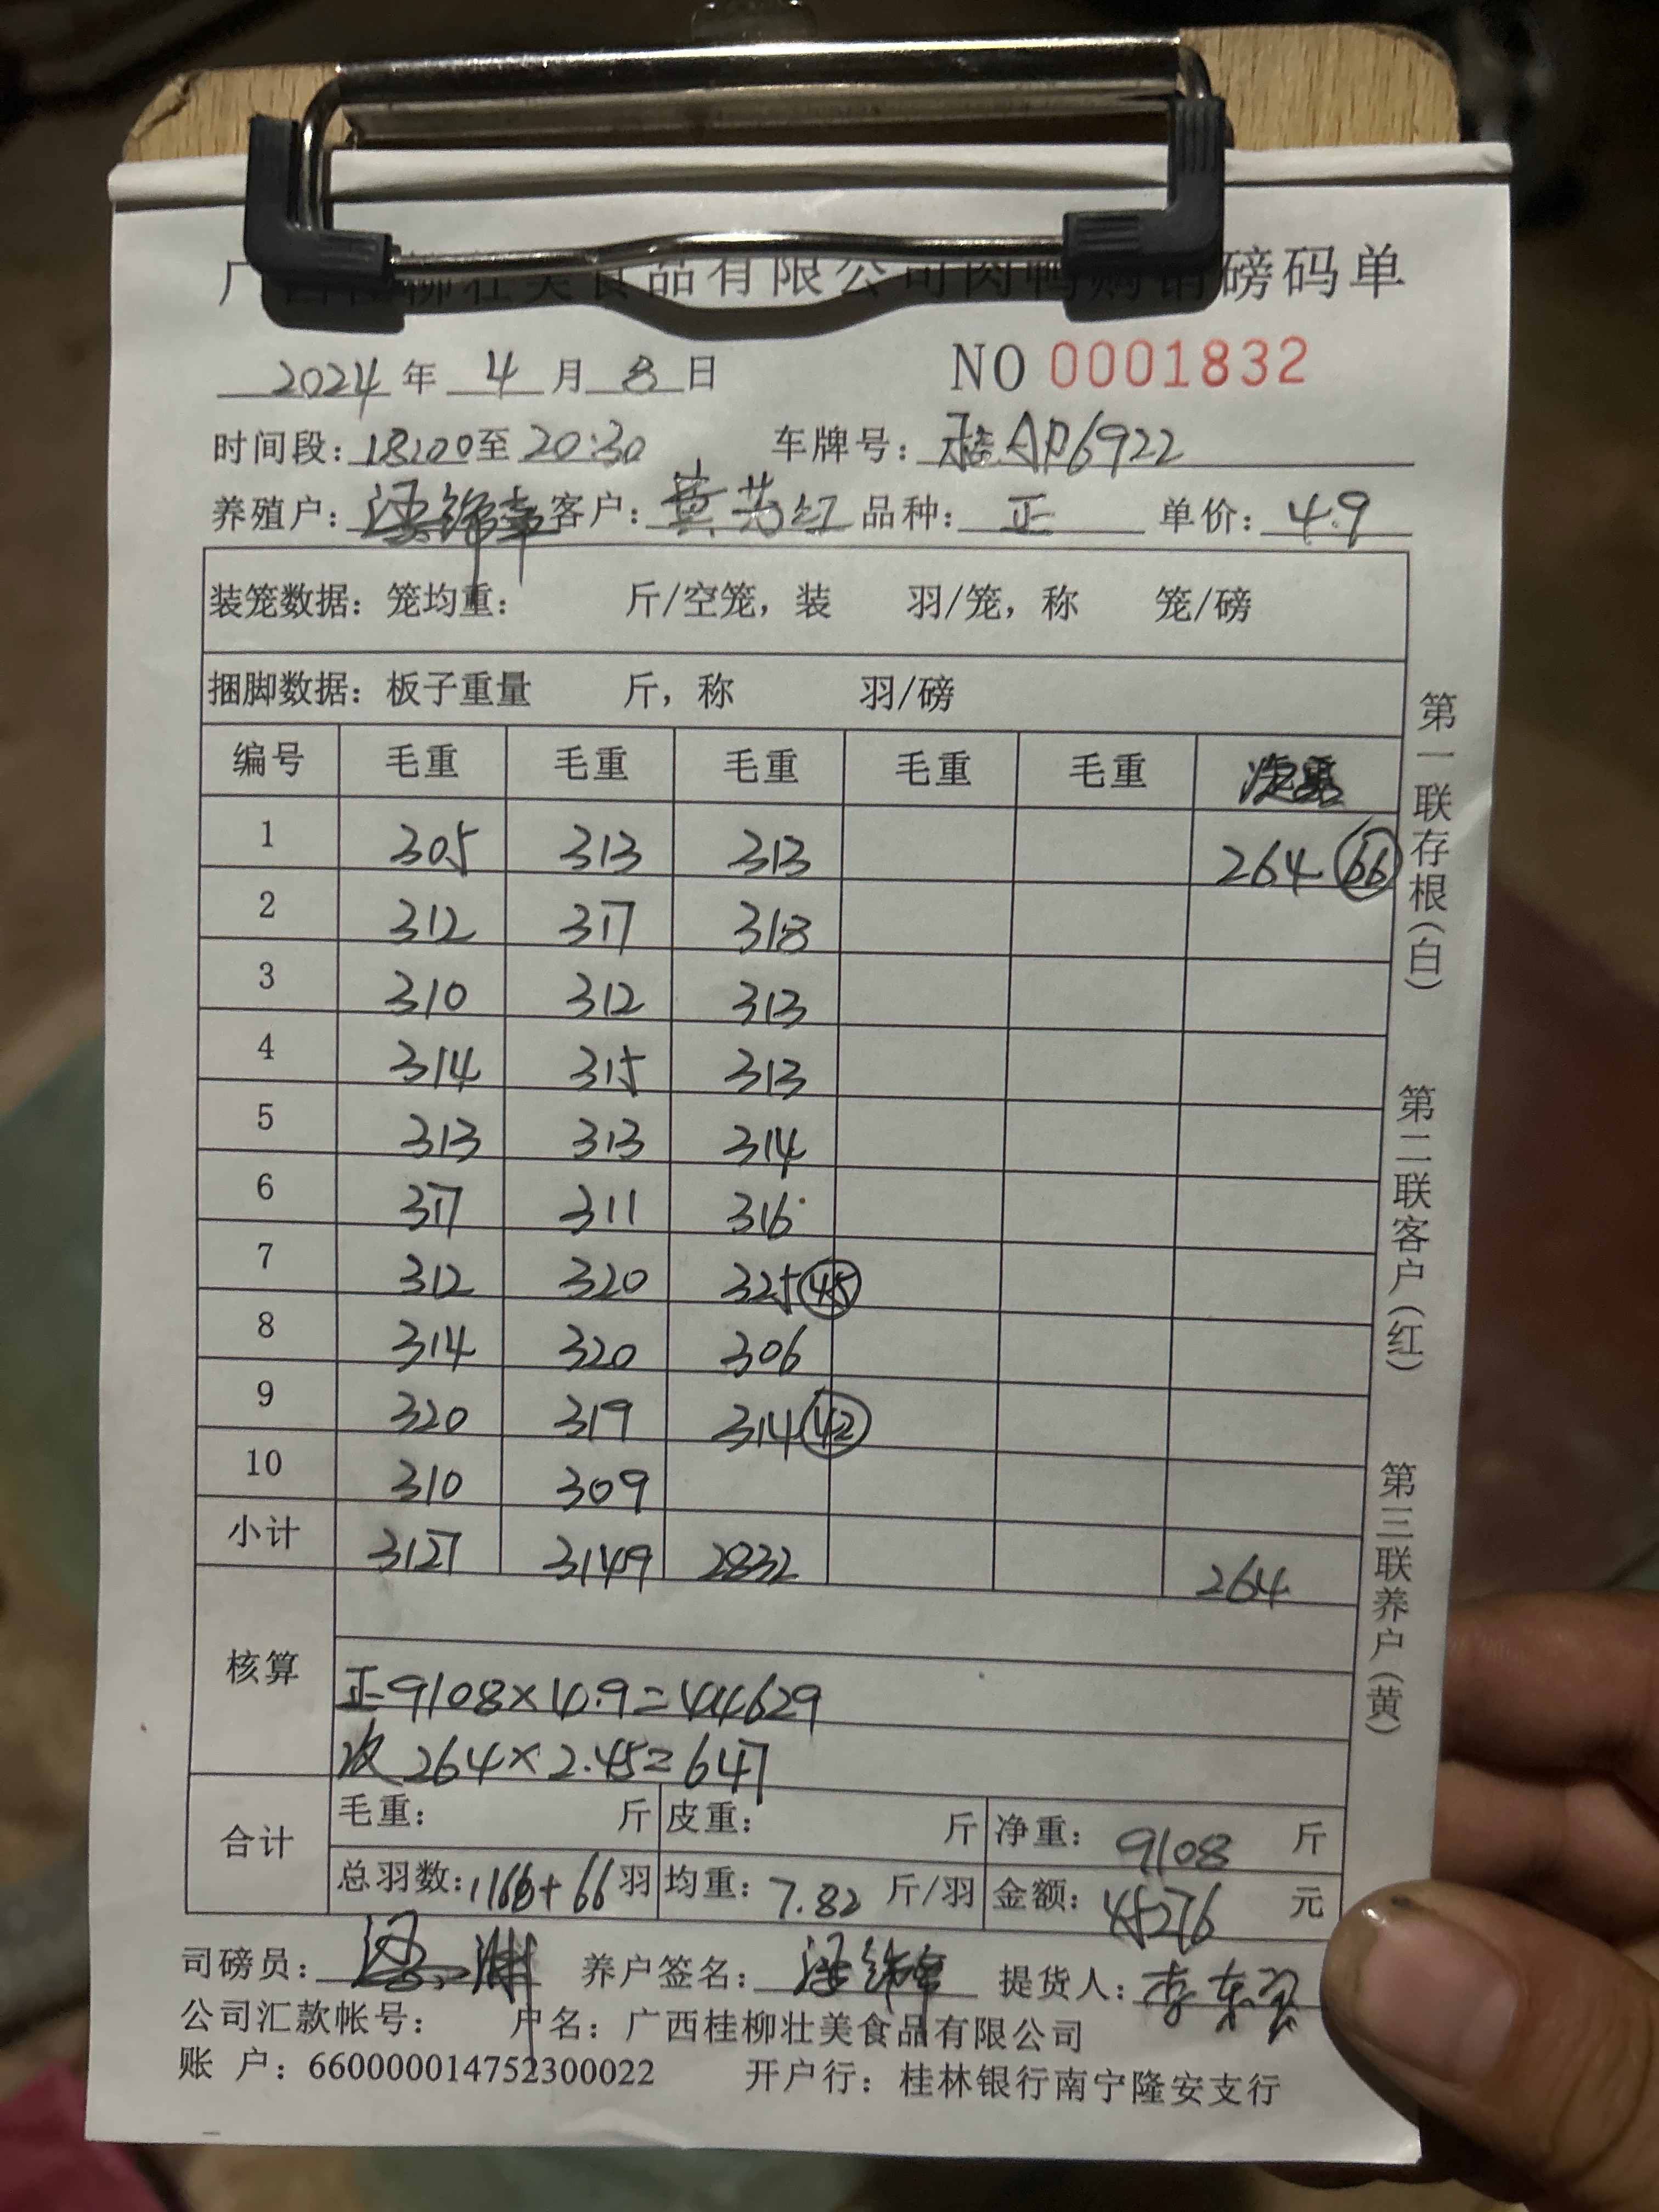 广西桂柳壮美食品有限公司肉鸭购销磅码单
2024年 4月 8日 NO 0001832
时间段：18:00至20:30 车牌号：桂AP6922
养殖户： 客户：黄芳红 品种：正 单价：4.9
装笼数据：笼均重： 斤/空笼，装 羽/笼，称 笼/磅
捆脚数据：板子重量 斤，称 羽/磅
编号 毛重 毛重 毛重 毛重 毛重
1 305 313 313 264 66
2 312 317 318
3 310 312 313
4 314 315 313
5 313 313 314
6 317 311 316
7 312 320 325 45
8 314 320 306
9 320 319 314 42
10 310 309
小计 3127 3149 2832 264
核算
正 9108×4.9=44629
次 264×2.45=647
合计
毛重： 斤 皮重： 斤 净重：9108 斤
总羽数：1166+66羽 均重：7.82 斤/羽 金额：45276 元
司磅员： 养户签名： 提货人：李
公司汇款帐号： 户名：广西桂柳壮美食品有限公司
账 户：660000014752300022 开户行：桂林银行南宁隆安支行
第一联存根(白)
第二联客户(红)
第三联养户(黄)